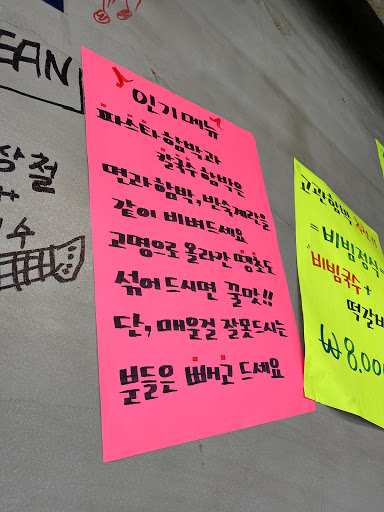 EAN
상철
수
인기메뉴
파스타함박과
칼국수함박은
면과함박, 반숙계란을
같이 비벼드세요
고명으로 올라간 땡초도
섞어 드시면 꿀맛!!
단, 매운걸 잘못드시는
분들은 빼고 드세요
고관함박
=비빔정식
비빔국수+
떡갈비
₩8,000